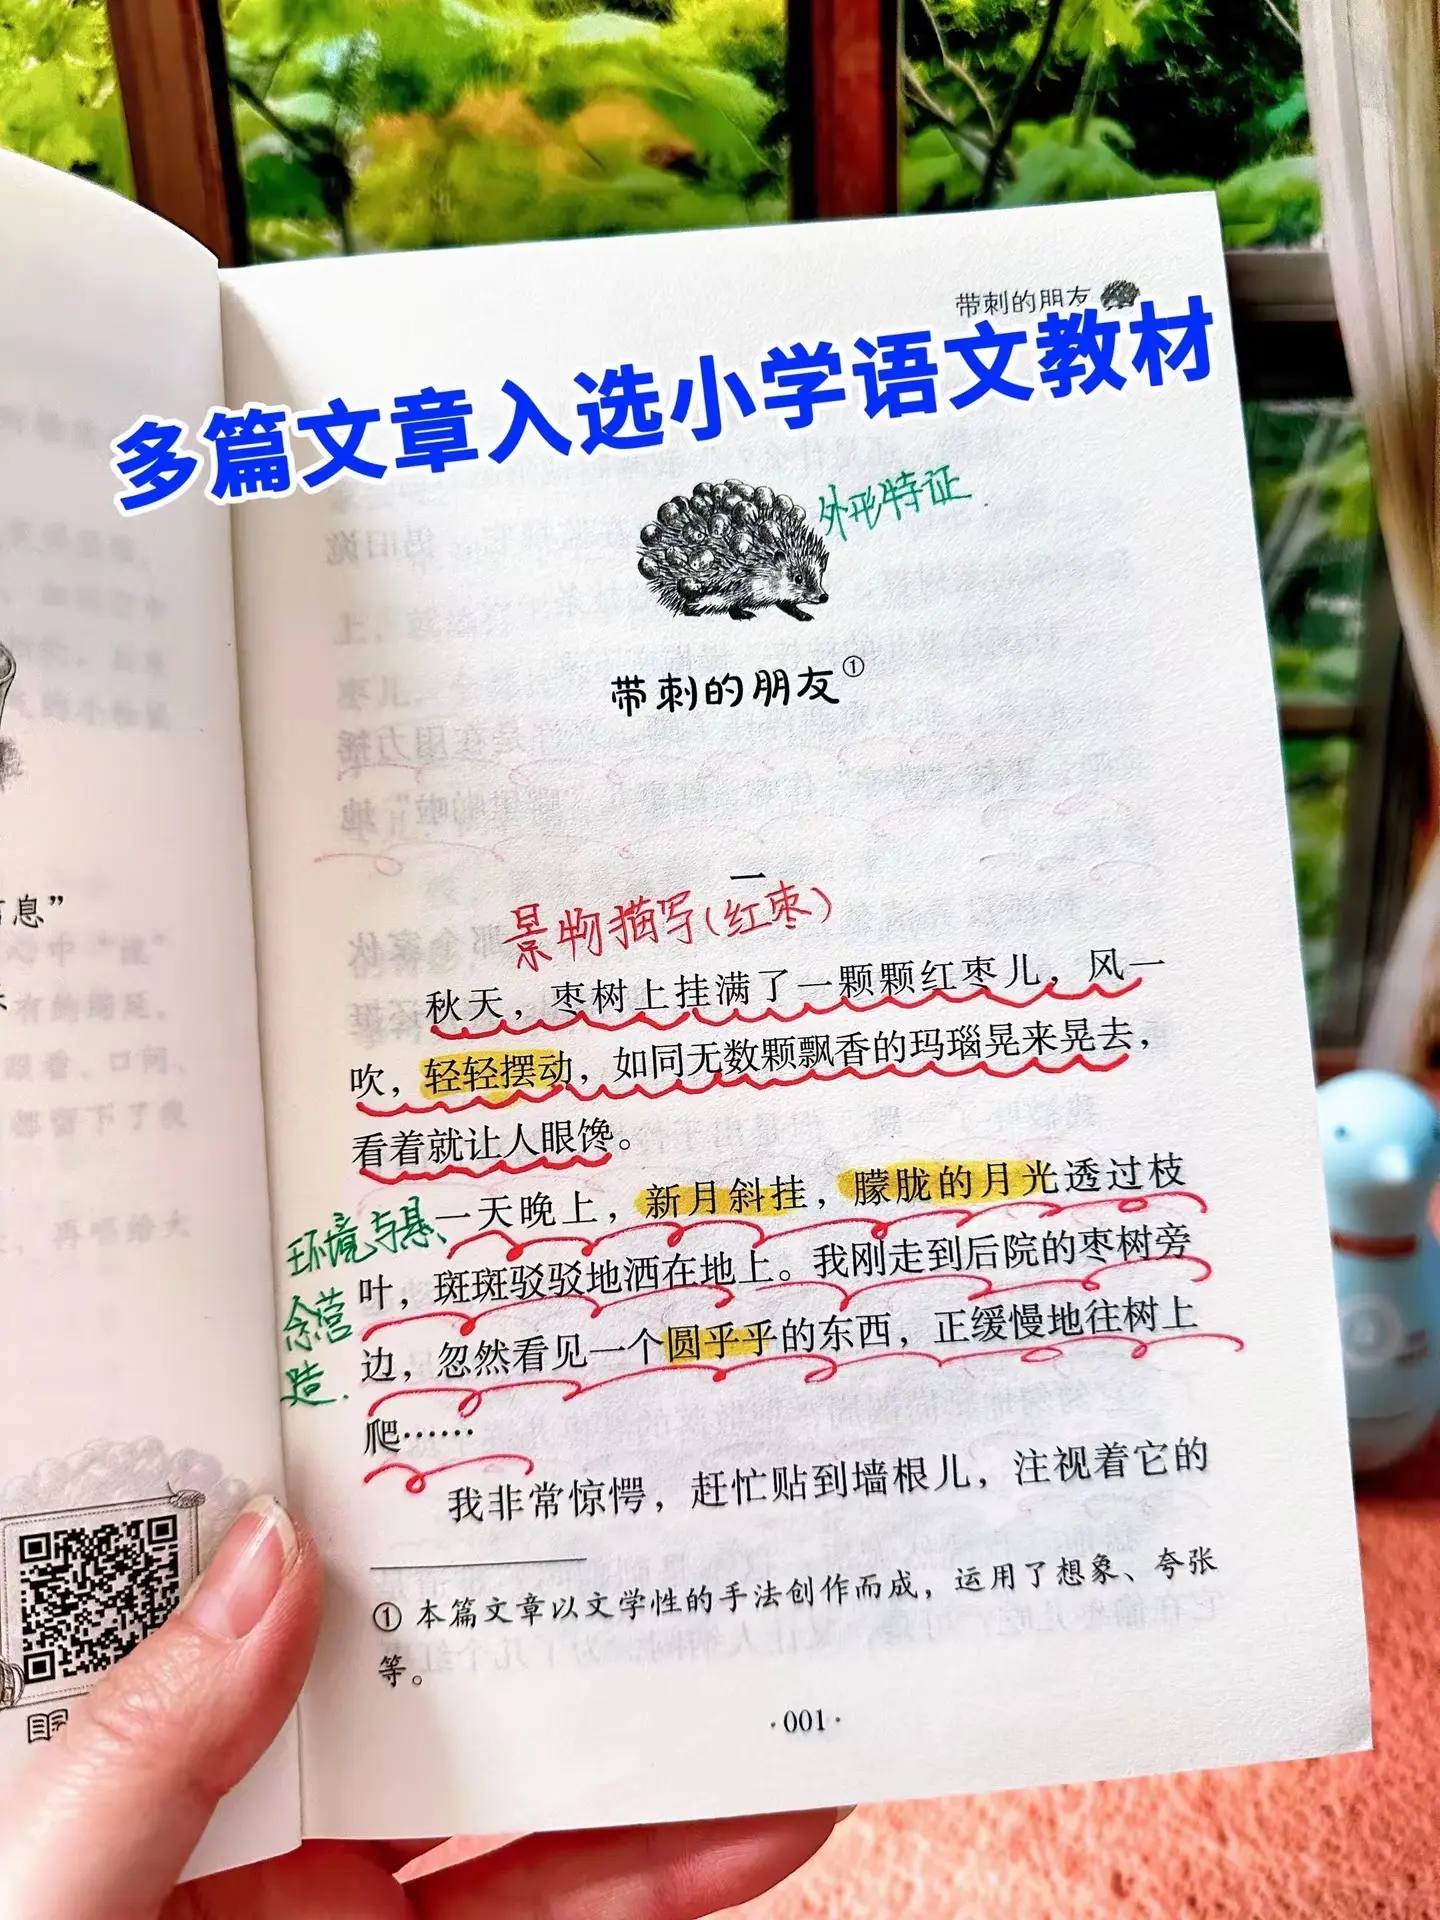 带刺的朋友
多篇文章入选小学语文教材
外形特征
带刺的朋友①
一
景物描写(红枣)
秋天，枣树上挂满了一颗颗红枣儿，风一
吹，轻轻摆动，如同无数颗飘香的玛瑙晃来晃去，
看着就让人眼馋。
环境与悬
念营
造.
一天晚上，新月斜挂，朦胧的月光透过枝
叶，斑斑驳驳地洒在地上。我刚走到后院的枣树旁
边，忽然看见一个圆乎乎的东西，正缓慢地往树上
爬……
我非常惊愕，赶忙贴到墙根儿，注视着它的
① 本篇文章以文学性的手法创作而成，运用了想象、夸张
等。
·001·
息”